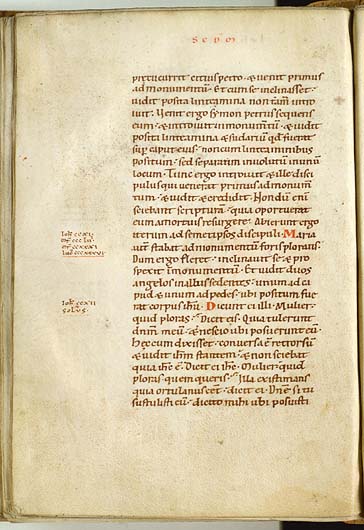 precucurrit citius petro & venit primus
ad monumentum. Et cum se inclinasset
vidit posita linteamina non tam̄ intro
ivit. Venit ergo symon petrus sequens
eum. & introivit in monumtū. & vidit
posita linteamina & sudariū qd̄ fuerat
sup̄ caput eius. non cum linteaminibus
positum. sed separatim involutū in unū
locum. Tunc ergo introivit & ille disci
pulus qui venerat primus ad monumen
tum. & vidit & credidit. Nondū enī
sciebant scripturā. quia oporteret
eum a mortuis resurgere. Abierunt ergo
iterum ad semetipsos discipuli. Maria
aut̄ stabat ad monumentū foris plorans.
Dum ergo fleret. inclinavit se & pro
spexit in monumentū. Et vidit duos
angelos in albis sedentes. unum ad ca
put & unum ad pedes. ubi positum fue
rat corpus ihū. Dicunt ei illi. Mulier
quid ploras? Dicit eis. Quia tulerunt
dnm̄ meū. & nescio ubi posuerunt eū.
Hec cum dixisset. conversa ē retrorsū
& vidit ihm̄ stantem. & non sciebat
quia ihc̄ ē. Dicit ei ihc̄. Mulier quid
ploras. quem queris? Illa existimans
quia ortulanus cēt. dicit ei. Dn̄e si tu
sustulisti eū. dicito mihi ubi posuisti